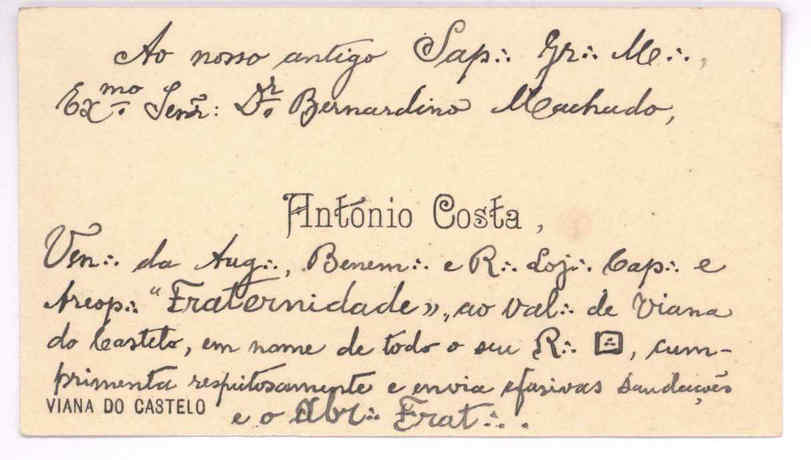 Ao nosso antigo Sap∴ Gr∴ M∴,
Ex.mo Senr: Dr. Bernardino Machado,
António Costa,
Ven∴ da Aug∴, Benem∴ e R∴ Loj∴ Cap∴ e
Areop∴ "Fraternidade», ao Val∴ de Viana
do Castelo, em nome de todo o seu R∴ ⊡, cum-
primenta respeitosamente e envia efusivas saudações
VIANA DO CASTELO
e o Abr∴ Frat∴.